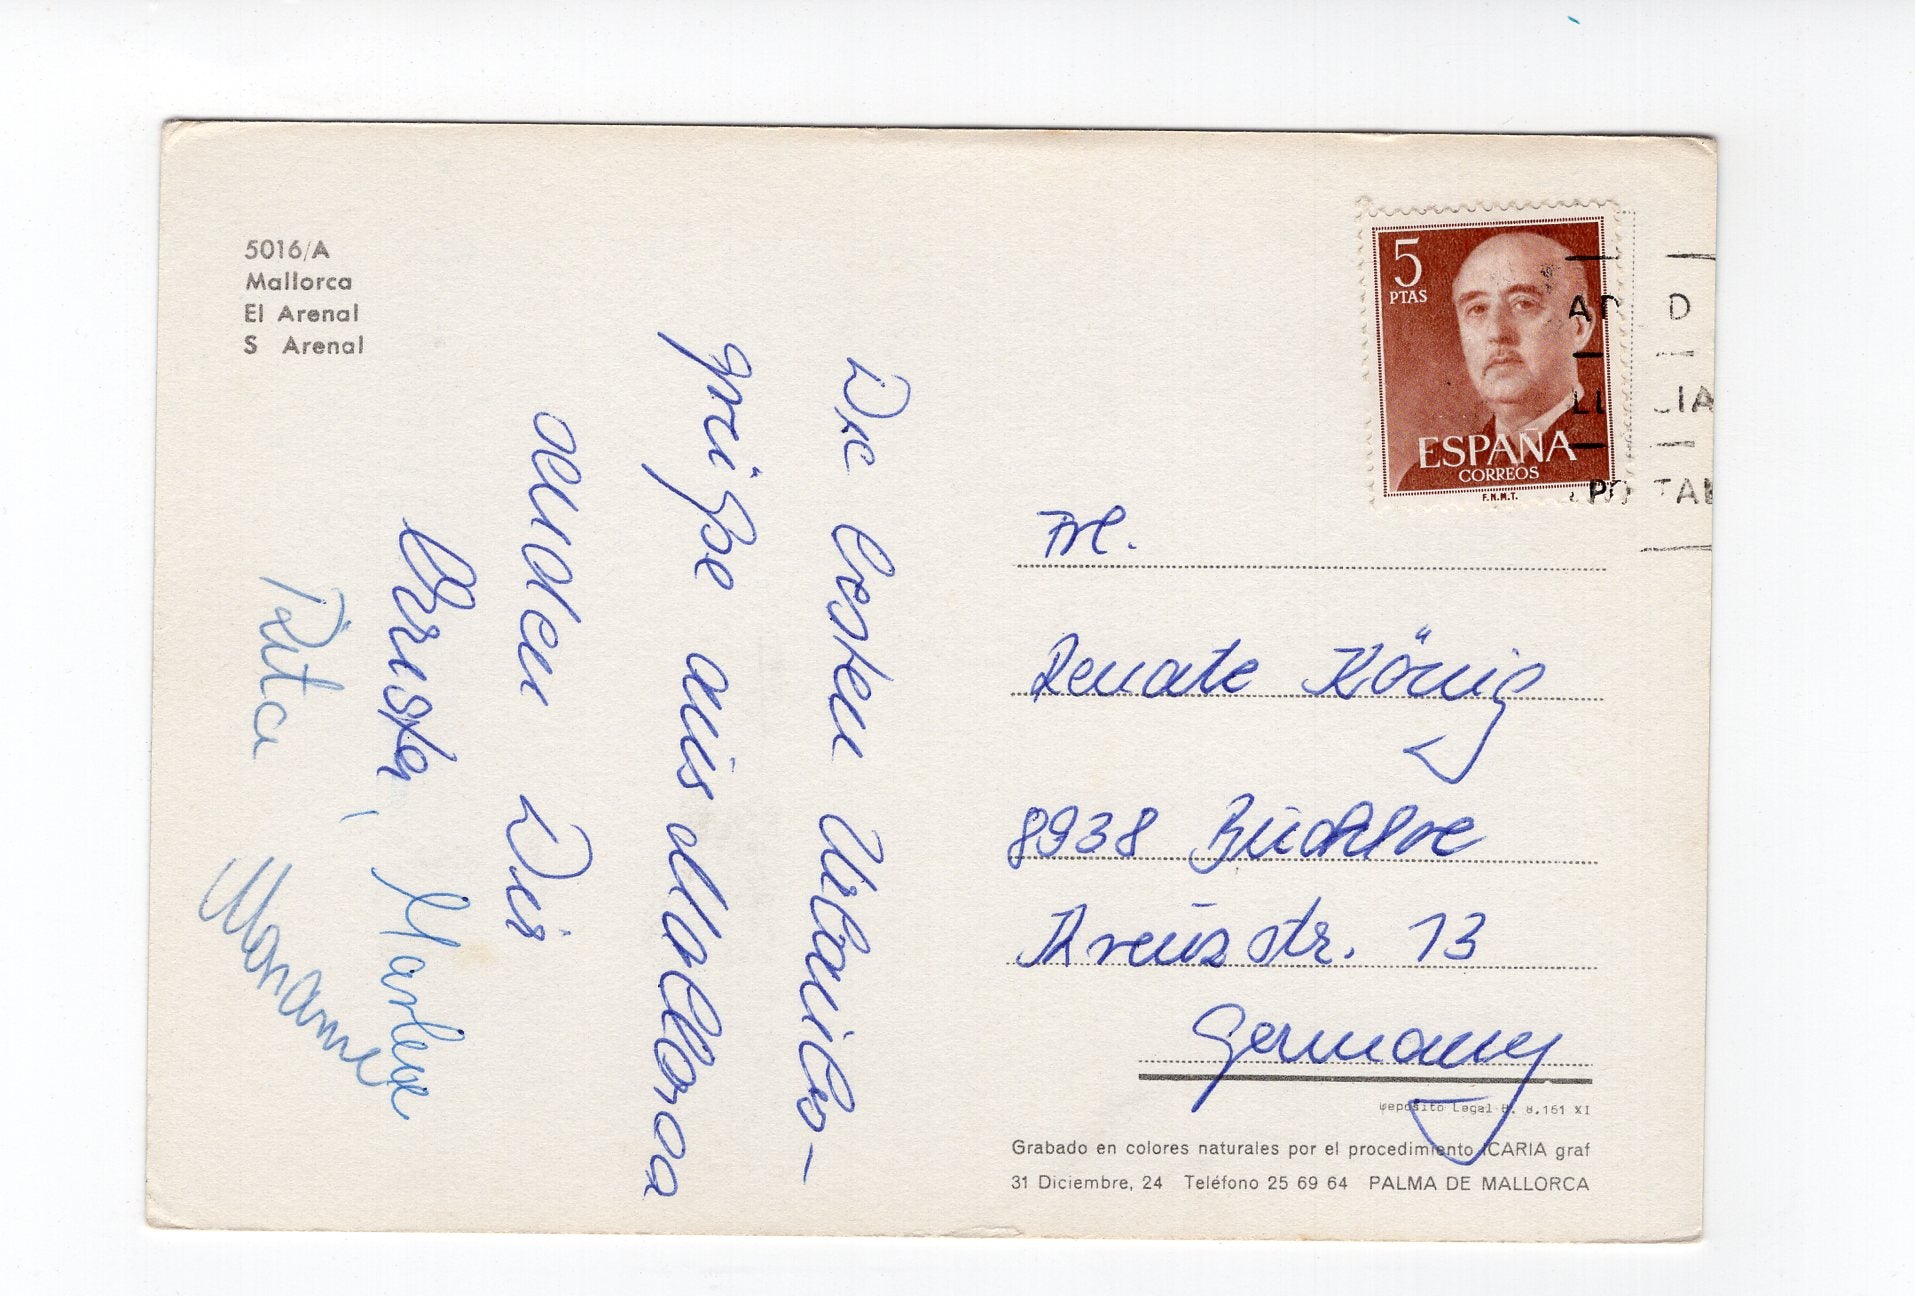 5016/A
Mallorca
El Arenal
S Arenal
Die besten Urlaubs-
grüße aus Mallorca
senden Dir
Christa, Marlene
Rita
Marianne
5
PTAS
ESPAÑA
CORREOS
F.N.M.T.
Frl.
Renate König
8938 Buchloe
Kreuzstr. 13
Germany
Deposito Legal B. 8.161 XI
Grabado en colores naturales por el procedimiento ICARIA graf
31 Diciembre, 24 Teléfono 25 69 64 PALMA DE MALLORCA